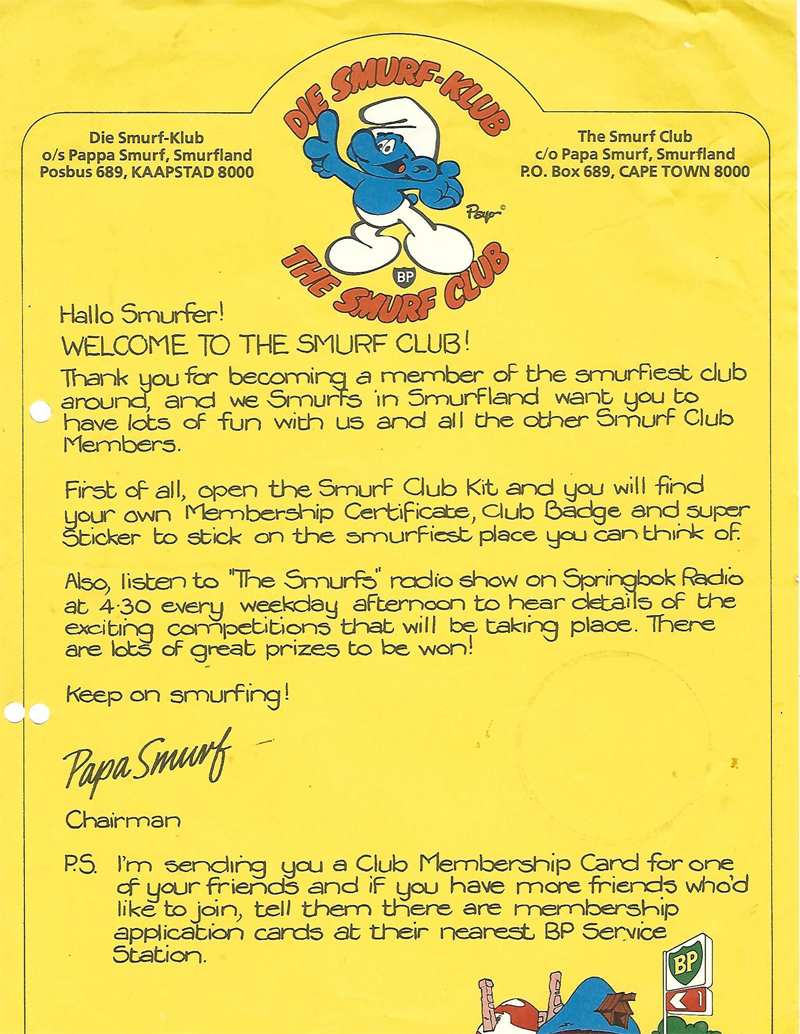 DIE SMURF-KLUB
Die Smurf-Klub
o/s Pappa Smurf, Smurfland
Posbus 689, KAAPSTAD 8000
The Smurf Club
c/o Papa Smurf, Smurfland
P.O. Box 689, CAPE TOWN 8000
Peyo ©
BP
THE SMURF CLUB
Hallo Smurfer!
WELCOME TO THE SMURF CLUB!
Thank you for becoming a member of the smurfiest club
around, and we Smurfs in Smurfland want you to
have lots of fun with us and all the other Smurf Club
Members.
First of all, open the Smurf Club Kit and you will find
your own Membership Certificate, Club Badge and super
Sticker to stick on the smurfiest place you can think of.
Also, listen to "The Smurfs" radio show on Springbok Radio
at 4·30 every weekday afternoon to hear details of the
exciting competitions that will be taking place. There
are lots of great prizes to be won!
Keep on smurfing!
Papa Smurf
Chairman
P.S. I'm sending you a Club Membership Card for one
of your friends and if you have more friends who'd
like to join, tell them there are membership
application cards at their nearest BP Service
Station.
BP
1